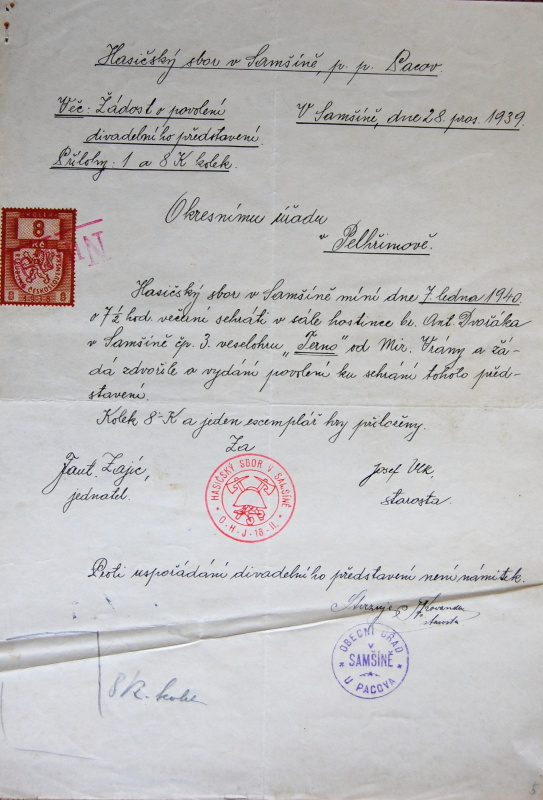 Hasičský sbor v Samšíně, p. p. Pacov.
Věc: Žádost o povolení
divadelního představení.
Přílohy: 1 a 8 K kolek.
V Samšíně, dne 28. pros. 1939.
Okresnímu úřadu
v Pelhřimově.
KOLEK
8
Kč
8 8
Hasičský sbor v Samšíně míní dne 7. ledna 1940
o 7 1/2 hod. večerní sehráti v sále hostince br. Ant. Dvořáka
v Samšíně čp. 3. veselohru „Terno" od Mir. Vrány a žá-
dá zdvořile o vydání povolení ku sehrání tohoto před-
stavení.
Kolek 8-K a jeden exemplář hry přiloženy.
Za
Zajíc, Josef Vlk,
jednatel. starosta.
HASIČSKÝ SBOR V SAMŠÍNĚ
O-H-J-18-II.
Proti uspořádání divadelního představení není námitek.
Kovanda
starosta
OBECNÍ ÚŘAD
V
SAMŠÍNĚ
U PACOVA
8 K. kolek